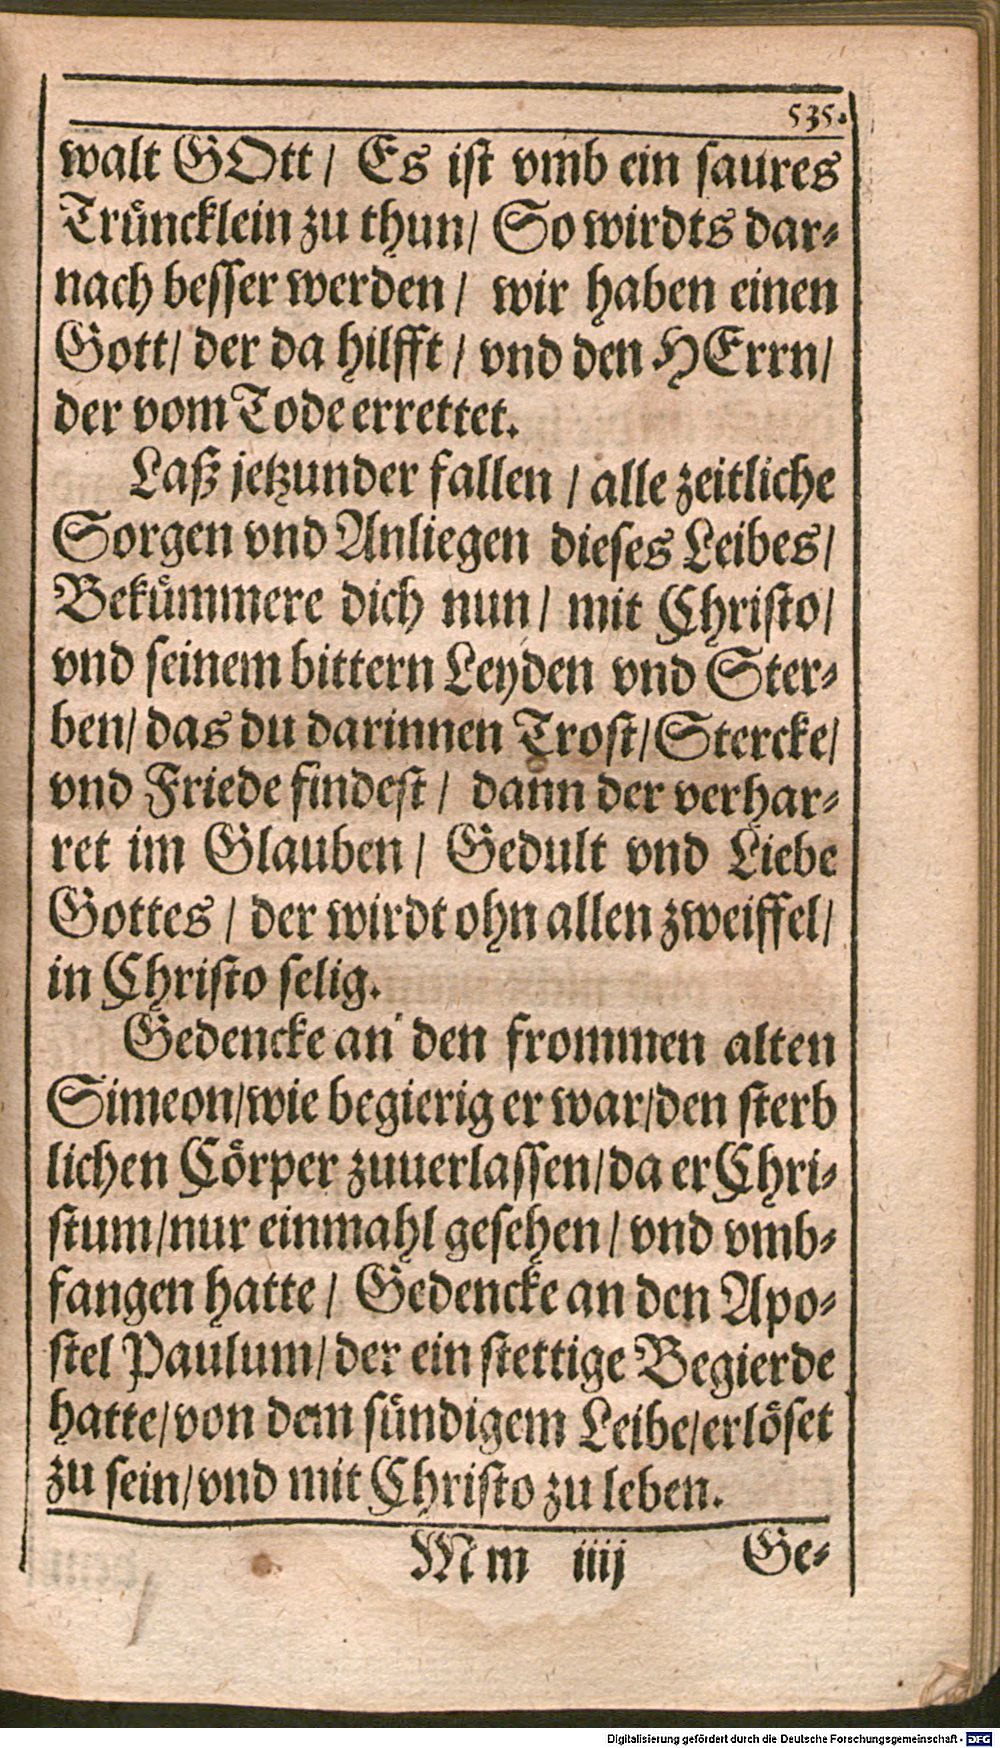 535.
walt GOtt/ Es ist vmb ein saures
Trüncklein zu thun/ So wirdts dar-
nach besser werden/ wir haben einen
Gott/ der da hilfft/ vnd den HErrn/
der vom Tode errettet.
Laß jetzunder fallen/ alle zeitliche
Sorgen vnd Anliegen dieses Leibes/
Bekümmere dich nun/ mit Christo/
vnd seinem bittern Leyden vnd Ster-
ben/ das du darinnen Trost/ Stercke/
vnd Friede findest/ dann der verhar-
ret im Glauben/ Gedult vnd Liebe
Gottes/ der wirdt ohn allen zweiffel/
in Christo selig.
Gedencke an den frommen alten
Simeon/ wie begierig er war/ den sterb
lichen Cörper zuuerlassen/ da er Chri-
stum/ nur einmahl gesehen/ vnd vmb-
fangen hatte/ Gedencke an den Apo-
stel Paulum/ der ein stettige Begierde
hatte/ von dem sündigem Leibe/ erlöset
zu sein/ vnd mit Christo zu leben.
Mm iiij Ge-
Digitalisierung gefördert durch die Deutsche Forschungsgemeinschaft - DFG